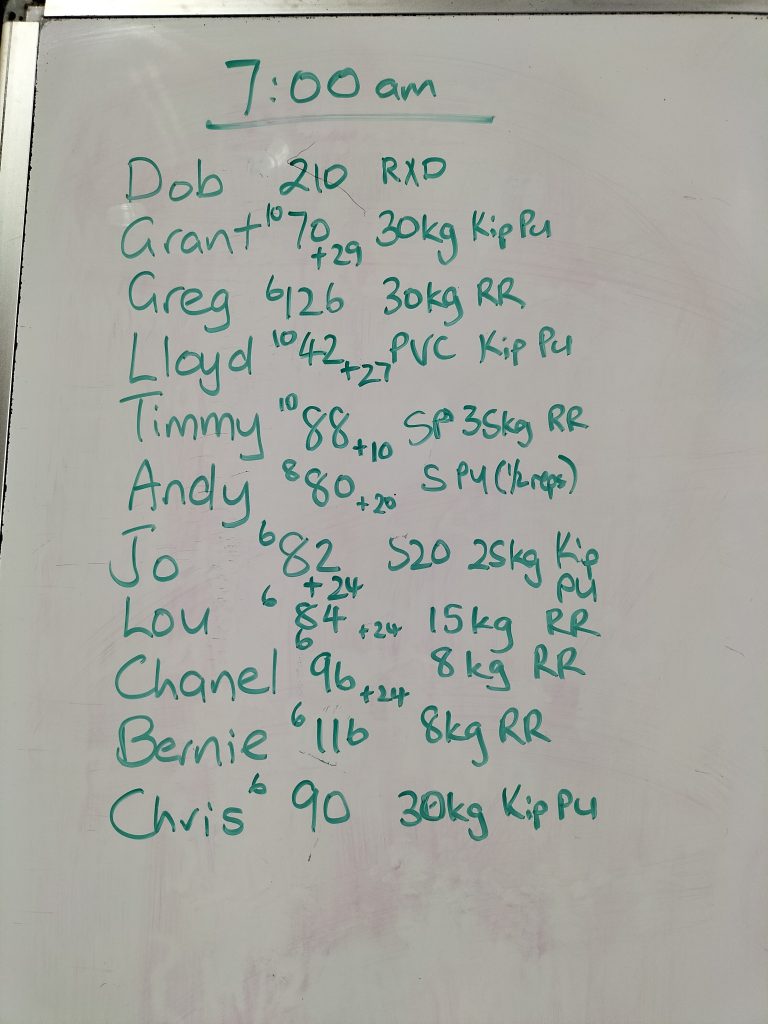 7:00 am
Dob 210 RXD
Grant 10 70 +29 30kg Kip PU
Greg 6 126 30kg RR
Lloyd 10 42 +27 PVC Kip PU
Timmy 10 88 +10 SP 35kg RR
Andy 8 80 +20 S PU (1/2 reps)
Jo 6 82 +24 S20 25kg Kip PU
Lou 6 84 +24 15kg RR
Chanel 6 96 +24 8kg RR
Bernie 6 116 8kg RR
Chris 6 90 30kg Kip PU